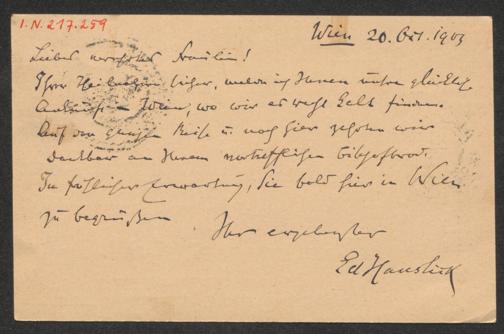 I.N. 217.259
Wien 20. Okt. 1903
Liebes verehrtes Fräulein!
Ihrer Theilnahme sicher, melde ich Ihnen unsre glückliche
Ankunft in Wien, wo wir es recht kalt finden.
Auf der ganzen Reise u. noch hier zehren wir
dankbar an Ihrem vortrefflichen
In fröhlicher Erwartung, Sie bald hier in Wien
zu begrüßen
Ihr ergebenster
Ed Hanslick